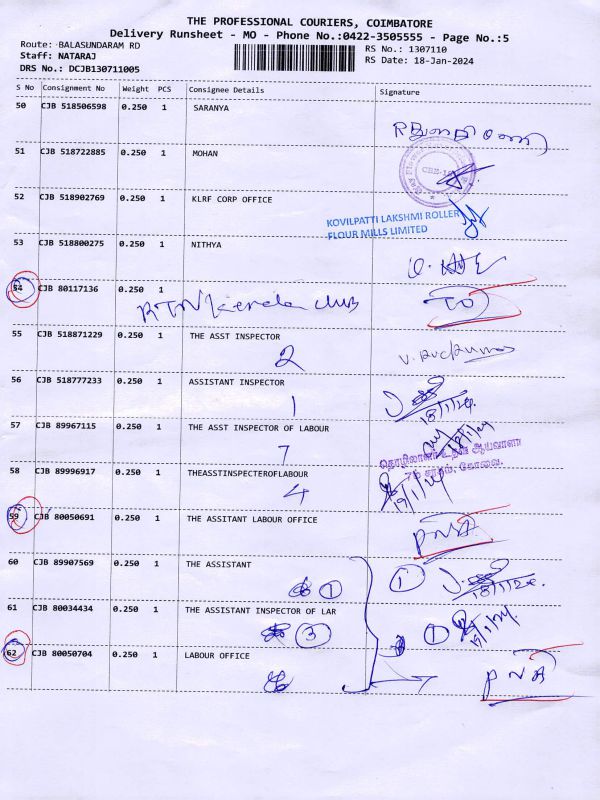 THE PROFESSIONAL COURIERS, COIMBATORE
Delivery Runsheet - MO - Phone No.:0422-3505555 - Page No.:5
Route: BALASUNDARAM RD RS No.: 1307110
Staff: NATARAJ RS Date: 18-Jan-2024
DRS No.: DCJB130711005
S No Consignment No Weight PCS Consignee Details Signature
50 CJB 518506598 0.250 1 SARANYA
51 CJB 518722885 0.250 1 MOHAN
52 CJB 518902769 0.250 1 KLRF CORP OFFICE
KOVILPATTI LAKSHMI ROLLER
FLOUR MILLS LIMITED
53 CJB 518800275 0.250 1 NITHYA
54 CJB 80117136 0.250 1
RTN Kerala club
55 CJB 518871229 0.250 1 THE ASST INSPECTOR
2
56 CJB 518777233 0.250 1 ASSISTANT INSPECTOR
1 18/1/24
57 CJB 89967115 0.250 1 THE ASST INSPECTOR OF LABOUR
7
58 CJB 89996917 0.250 1 THEASSTINSPECTEROFLABOUR
4
59 CJB 80050691 0.250 1 THE ASSITANT LABOUR OFFICE
PNA
60 CJB 89907569 0.250 1 THE ASSISTANT
1 1 18/1/24
61 CJB 80034434 0.250 1 THE ASSISTANT INSPECTOR OF LAR
3 1
62 CJB 80050704 0.250 1 LABOUR OFFICE
PNA